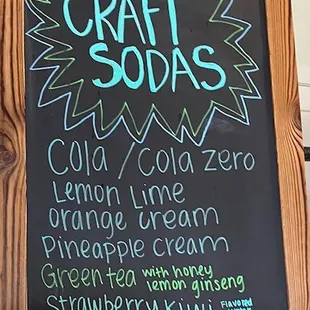 CRAFT
SODAS
Cola / Cola zero
Lemon Lime
orange cream
Pineapple cream
Green tea with honey
lemon ginseng
Strawberry Kiwi Flavored